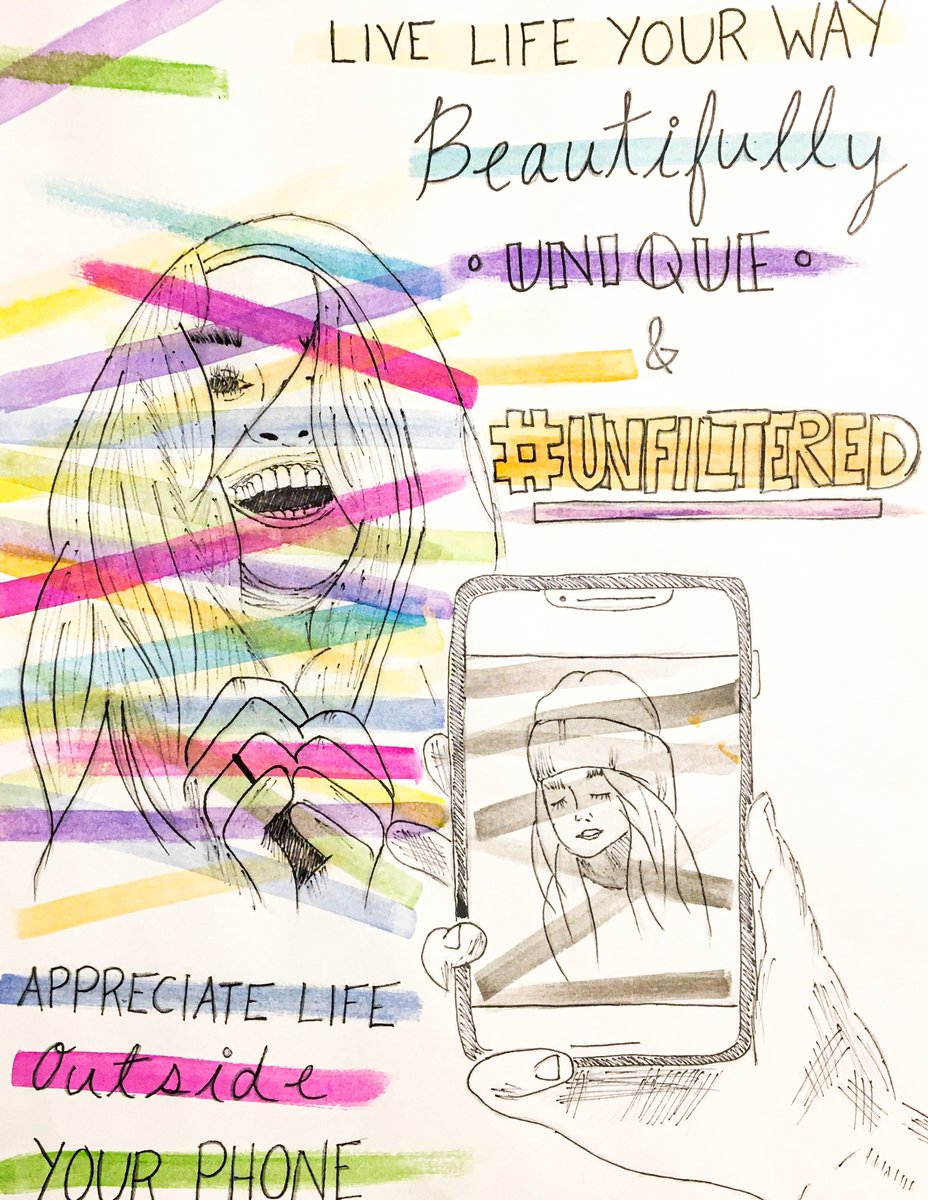 LIVE LIFE YOUR WAY
Beautifully
• UNIQUE •
&
#UNFILTERED
APPRECIATE LIFE
Outside
YOUR PHONE